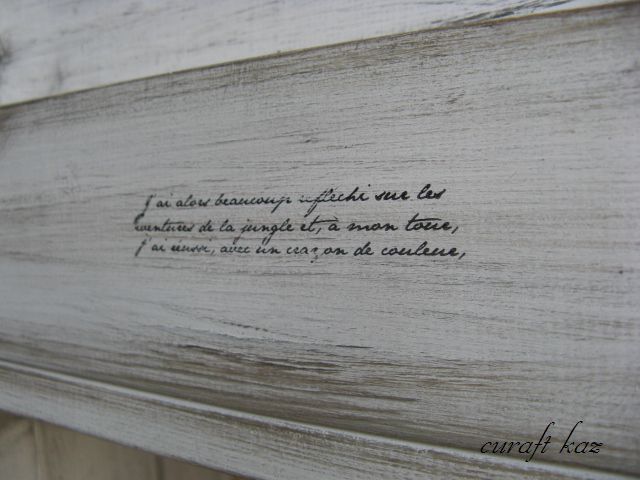 j'ai alors beaucoup réfléchi sur les
aventures de la jungle et, à mon tour,
j'ai réussi, avec un crayon de couleur,
curaft kaz